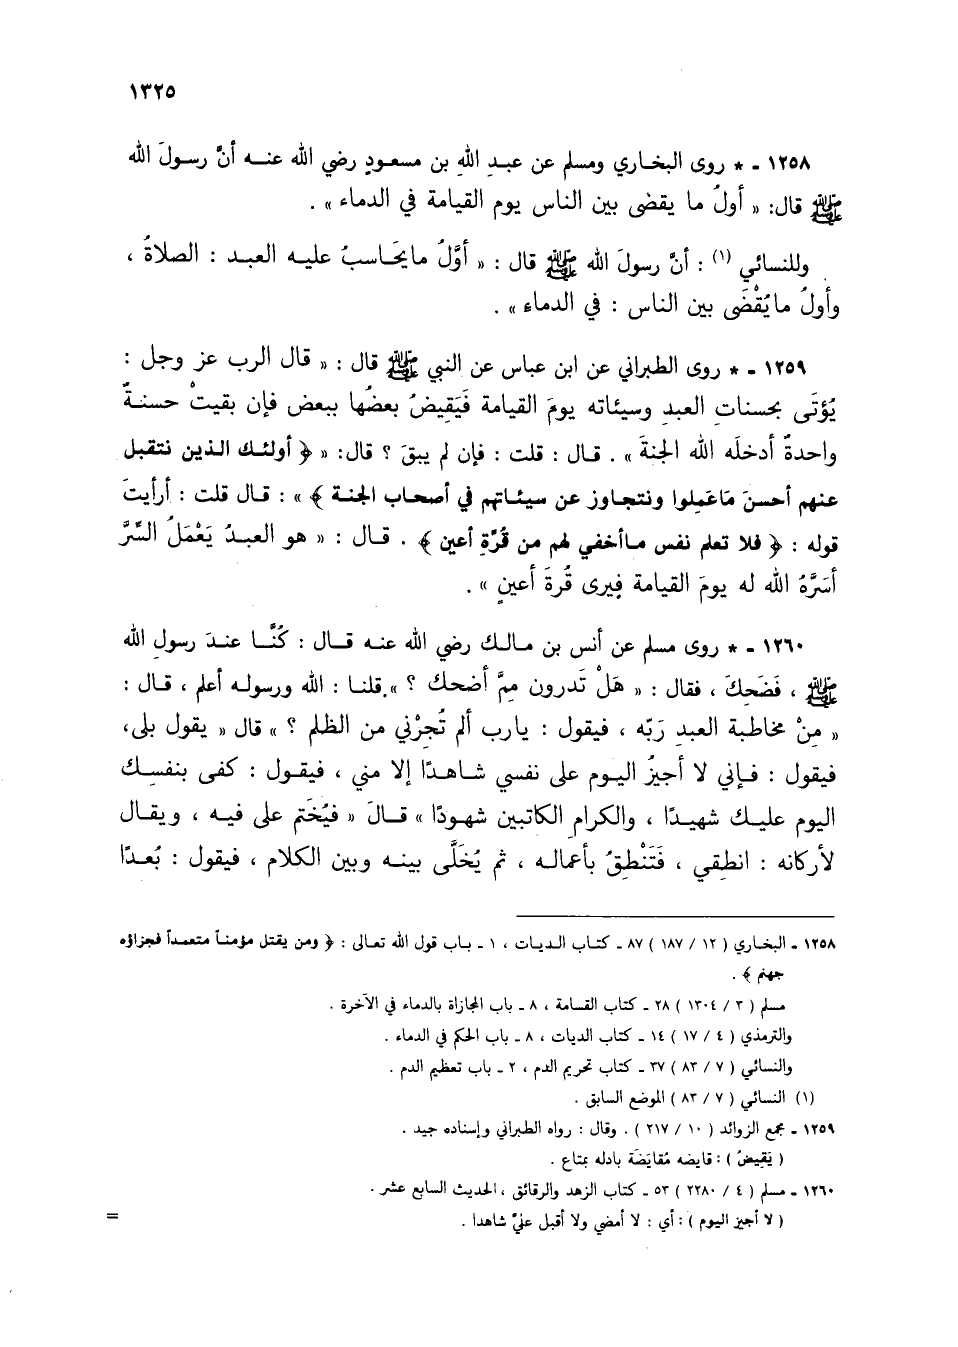 ١٣٢٥
١٢٥٨ - * روى البخاري ومسلم عن عبدِ اللهِ بن مسعودٍ رضي الله عنه أنَّ رسولَ الله
ﷺ قال: « أولُ ما يقضى بين الناس يوم القيامة في الدماء » .
وللنسائي (١) : أنَّ رسولَ الله ﷺ قال : « أوَّلُ مايحَاسبُ عليه العبد : الصلاةُ ،
وأولُ مايُقْضَى بين الناس : في الدماء » .
١٢٥٩ - * روى الطبراني عن ابن عباس عن النبي ﷺ قال : « قال الرب عز وجل :
يُؤتَى بحسناتِ العبدِ وسيئاته يومَ القيامة فَيَقِيضُ بعضُها ببعض فإن بقيتْ حسنةٌ
واحدةٌ أدخلَه الله الجنةَ » . قال : قلت : فإن لم يبقَ ؟ قال: « ﴿ أولئك الذين نتقبل
عنهم أحسنَ مَاعَمِلوا ونتجاوز عن سيئاتهم في أصحاب الجنة ﴾ » : قال قلت : أرأيتَ
قوله : ﴿ فلا تعلم نفس ماأخفي لهم من قُرَّةِ أعين ﴾ . قال : « هو العبدُ يَعْمَلُ السِّرَّ
أسَرَّهُ الله له يومَ القيامة فيرى قُرةَ أعينٍ » .
١٢٦٠ - * روى مسلم عن أنس بن مالك رضي الله عنه قال : كُنَّا عندَ رسولِ الله
ﷺ ، فَضَحِكَ ، فقال : « هَلْ تَدرون مِمَّ أضحك ؟ » . قلنا : الله ورسوله أعلم ، قال :
« مِنْ مخاطبة العبدِ رَبّه ، فيقول : يارب ألم تُجِرْني من الظلم ؟ » قال « يقول بلى،
فيقول : فإني لا أجيزُ اليوم على نفسي شاهدًا إلا مني ، فيقول : كفى بنفسك
اليوم عليك شهيدًا ، والكرامِ الكاتبين شهودًا » قالَ « فيُختَم على فيه ، ويقال
لأركانه : انطِقي ، فَتَنْطِقُ بأعماله ، ثم يُخَلَّى بينه وبين الكلام ، فيقول : بُعدًا
١٢٥٨ - البخاري ( ١٢ / ١٨٧ ) ٨٧ - كتاب الديات ، ١ - باب قول الله تعالى : ﴿ ومن يقتل مؤمناً متعمداً فجزاؤه
جهنم ﴾ .
مسلم ( ٣ / ١٣٠٤ ) ٢٨ - كتاب القسامة ، ٨ - باب المجازاة بالدماء في الآخرة .
والترمذي ( ٤ / ١٧ ) ١٤ - كتاب الديات ، ٨ - باب الحكم في الدماء .
والنسائي ( ٧ / ٨٣ ) ٣٧ - كتاب تحريم الدم ، ٢ - باب تعظيم الدم .
(١) النسائي ( ٧ / ٨٣ ) الموضع السابق .
١٢٥٩ - مجمع الزوائد ( ١٠ / ٢١٧ ) . وقال : رواه الطبراني وإسناده جيد .
( يَقِيضُ ) : قايضه مُقايَضَة بادله بمتاع .
١٢٦٠ - مسلم ( ٤ / ٢٢٨٠ ) ٥٣ - كتاب الزهد والرقائق ، الحديث السابع عشر .
( لا أجيز اليوم ) : أي : لا أمضي ولا أقبل عليَّ شاهدا .
=